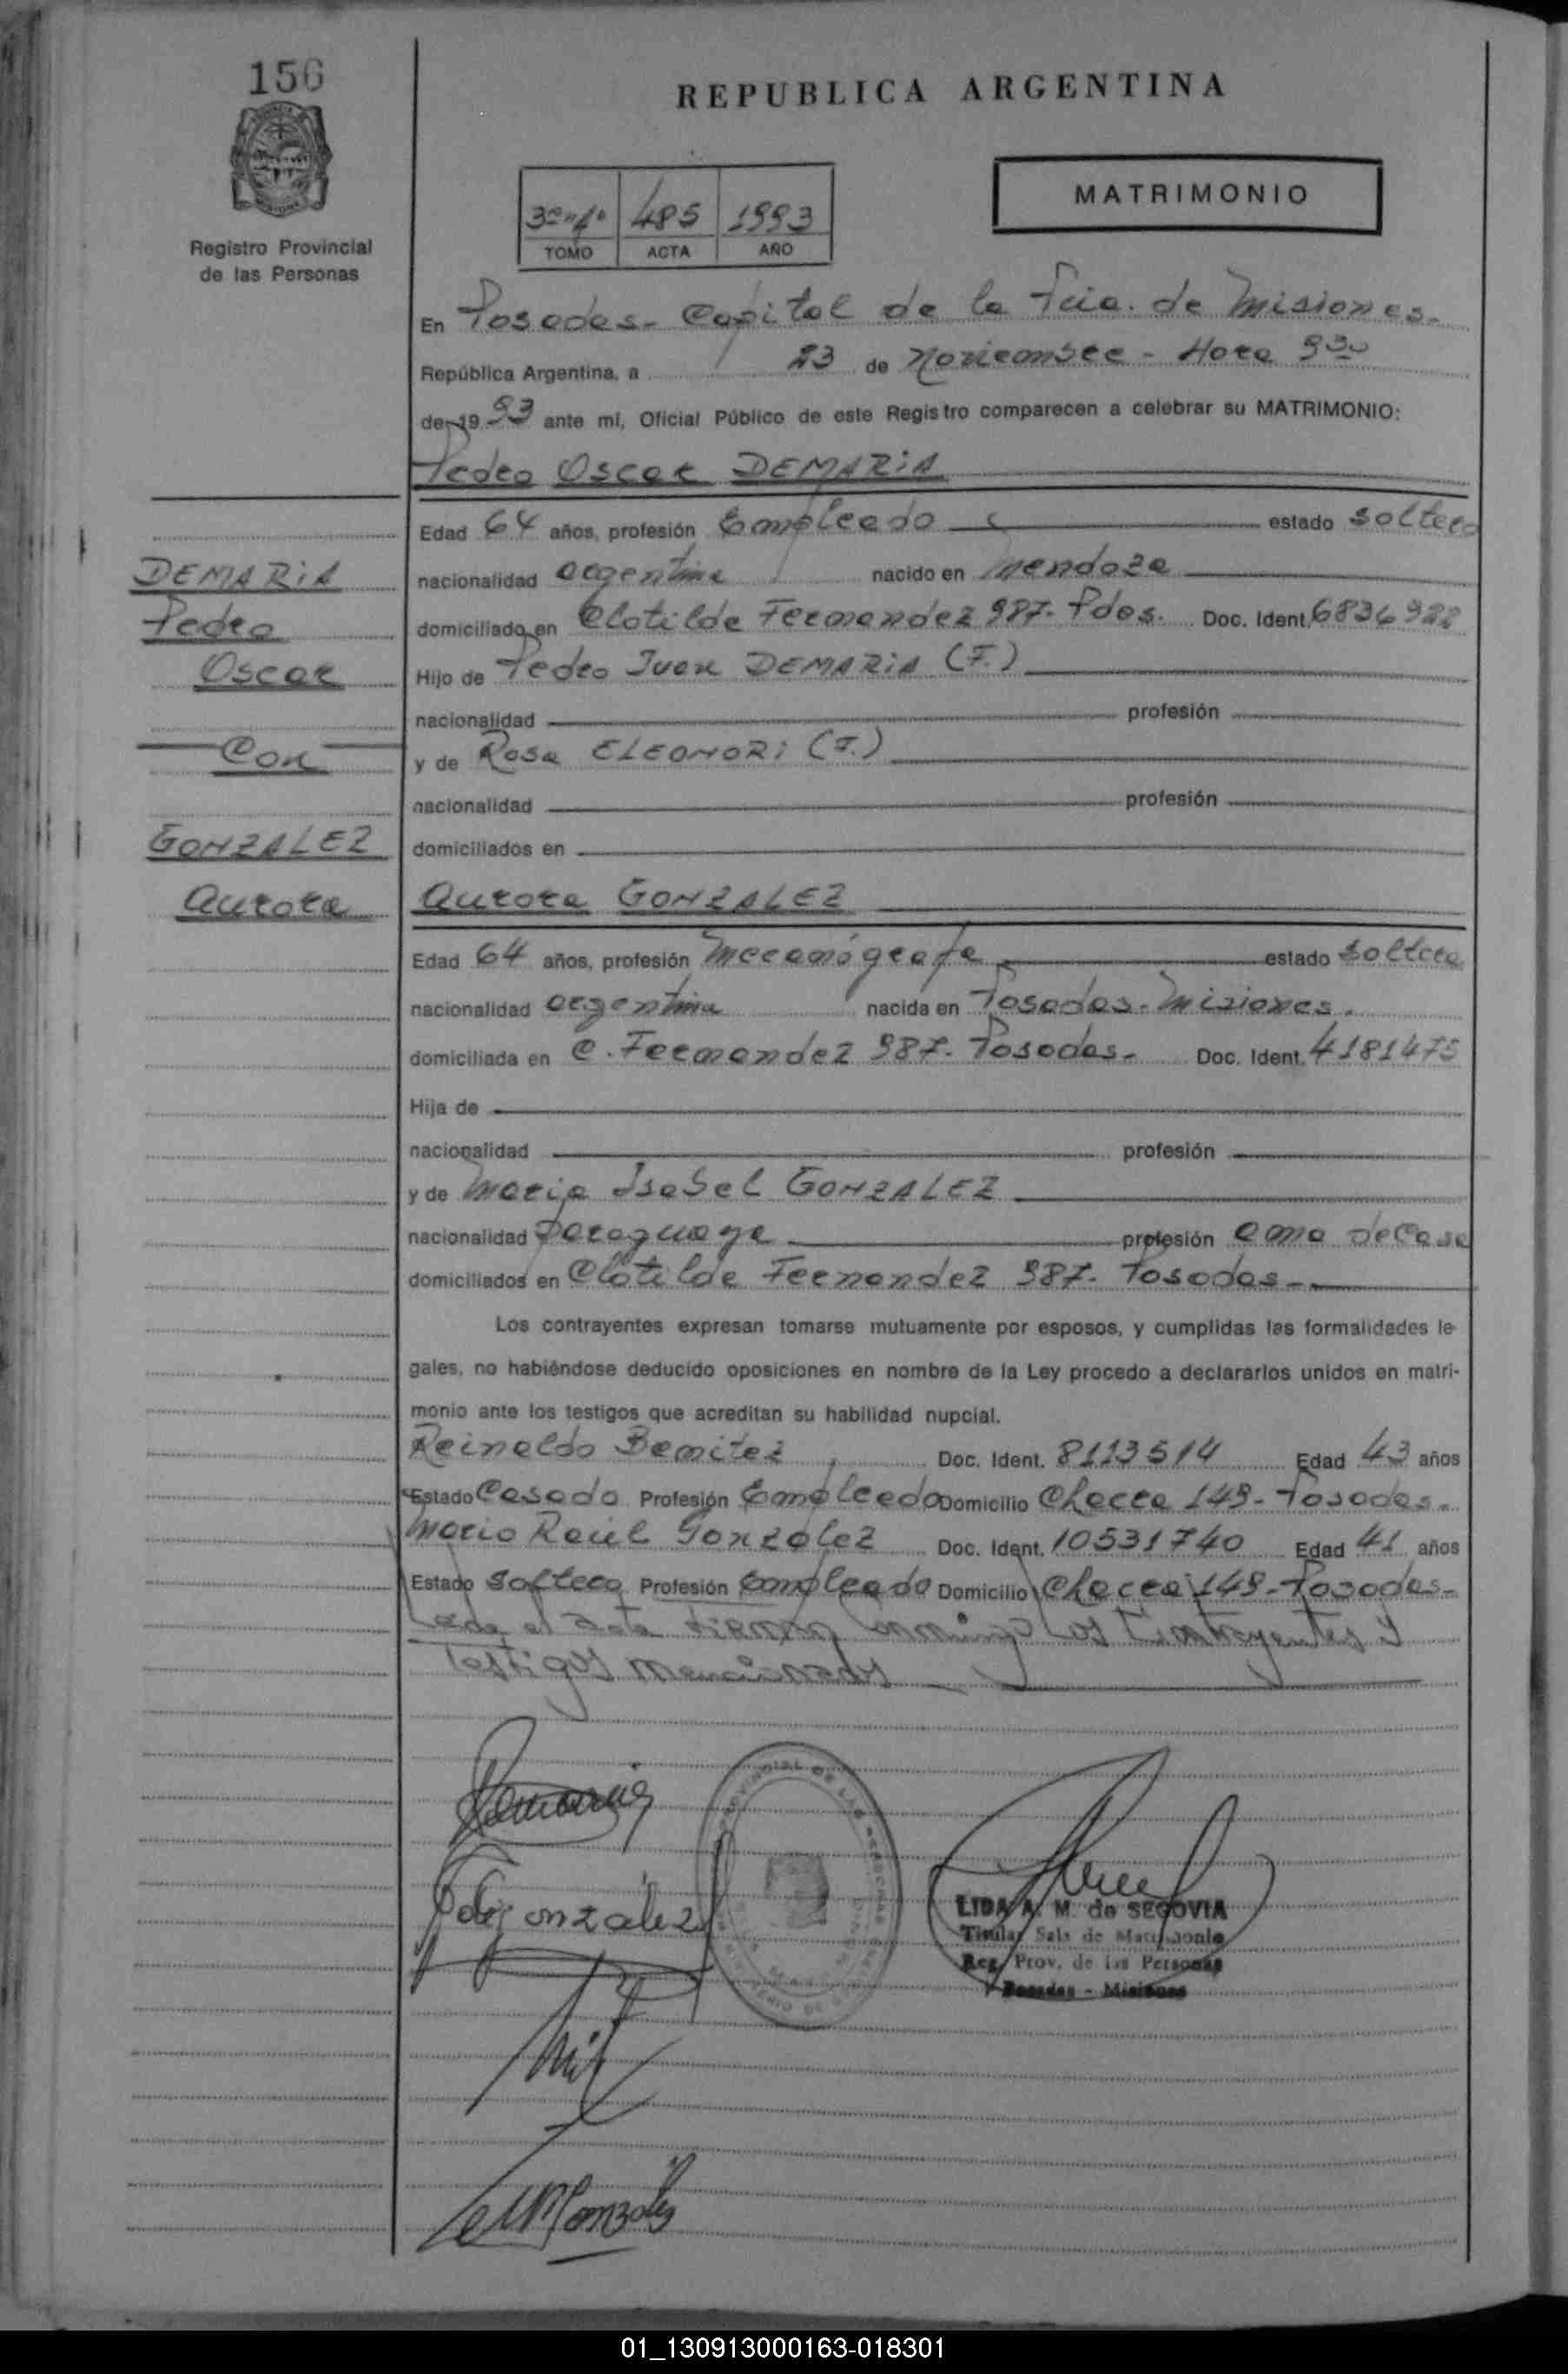 156
REPUBLICA ARGENTINA
Registro Provincial
de las Personas
MATRIMONIO
3º "A" 485 1993
TOMO ACTA AÑO
En Posadas - Capital de la Pcia. de Misiones -
República Argentina, a 23 de Noviembre - Hora 9 30
de 19 93 ante mí, Oficial Público de este Registro comparecen a celebrar su MATRIMONIO:
Pedro Oscar DEMARIA
Edad 64 años, profesión Empleado estado soltero
nacionalidad argentina nacido en Mendoza
domiciliado en Clotilde Fernandez 987 - Pdas. Doc. Ident. 6836922
Hijo de Pedro Juan DEMARIA (F.)
nacionalidad profesión
y de Rosa ELEONORI (F.)
nacionalidad profesión
domiciliados en
DEMARIA
Pedro
Oscar
Con
GONZALEZ
Aurora
Aurora GONZALEZ
Edad 64 años, profesión Mecanógrafa estado soltera
nacionalidad argentina nacida en Posadas - Misiones.
domiciliada en C. Fernandez 987 - Posadas - Doc. Ident. 4181475
Hija de
nacionalidad profesión
y de Maria Isabel GONZALEZ
nacionalidad Paraguaya profesión ama de Casa
domiciliados en Clotilde Fernandez 987 - Posadas -
Los contrayentes expresan tomarse mutuamente por esposos, y cumplidas las formalidades le-
gales, no habiéndose deducido oposiciones en nombre de la Ley procedo a declararlos unidos en matri-
monio ante los testigos que acreditan su habilidad nupcial.
Reinaldo Benitez Doc. Ident. 8113514 Edad 43 años
Estado Casado Profesión Empleado Domicilio Chacra 149 - Posadas -
Mario Raúl Gonzalez Doc. Ident. 10531740 Edad 41 años
Estado Soltero Profesión Empleado Domicilio Chacra 149 - Posadas -
Leida el Acta firman conmigo los Contrayentes y
Testigos mencionados
Gonzalez
LIDA A. M. de SEGOVIA
Titular Sala de Matrimonio
Reg. Prov. de las Personas
Posadas - Misiones
Gonzalez
01_130913000163-018301